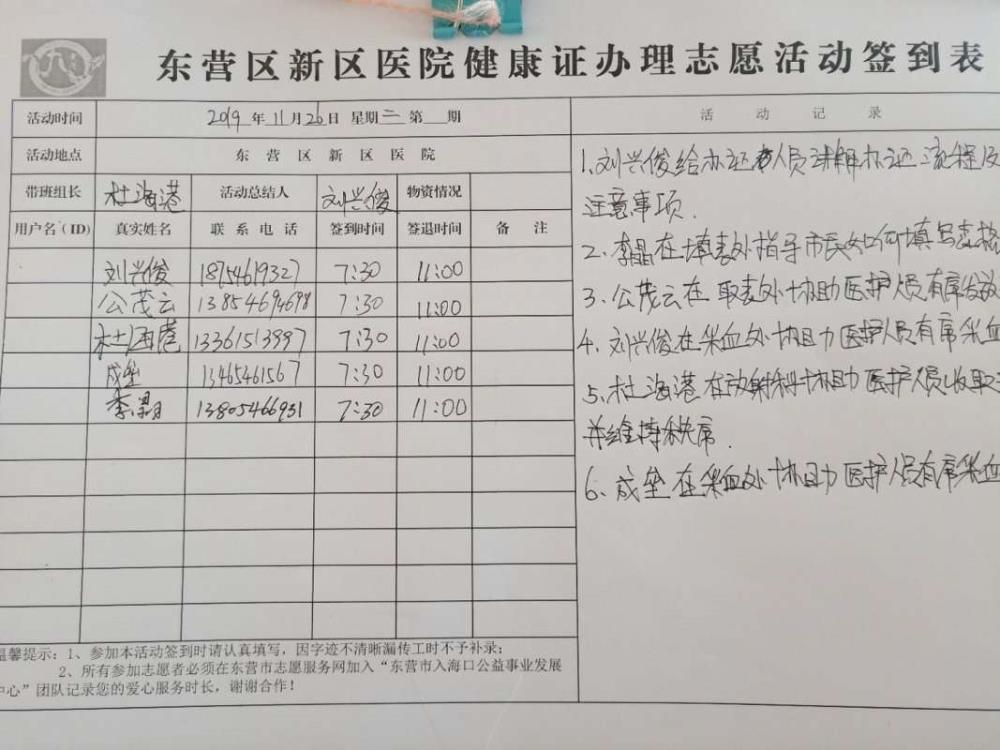 东营区新区医院健康证办理志愿活动签到表
活动时间 2019年11月26日 星期二 第 期
活动地点 东营区新区医院
带班组长 杜海港 活动总结人 刘兴俊 物资情况
用户名(ID) 真实姓名 联系电话 签到时间 签退时间 备注
刘兴俊 18754619327 7:30 11:00
公茂云 13854694698 7:30 11:00
杜海港 13361513997 7:30 11:00
成垒 13465461567 7:30 11:00
李晶 13805466931 7:30 11:00
温馨提示:1、参加本活动签到时请认真填写,因字迹不清晰漏传工时不予补录;
2、所有参加志愿者必须在东营市志愿服务网加入“东营市入海口公益事业发展
中心”团队记录您的爱心服务时长,谢谢合作!
活动记录
1.刘兴俊给办证人员讲解办证流程及
注意事项.
2.李晶在填表处指导市民如何填写表格
3.公茂云在取表处协助医护人员有序发放
4.刘兴俊在采血处协助医护人员有序采血
5.杜海港在放射科协助医护人员收取
并维持秩序.
6.成垒在采血处协助医护人员有序采血